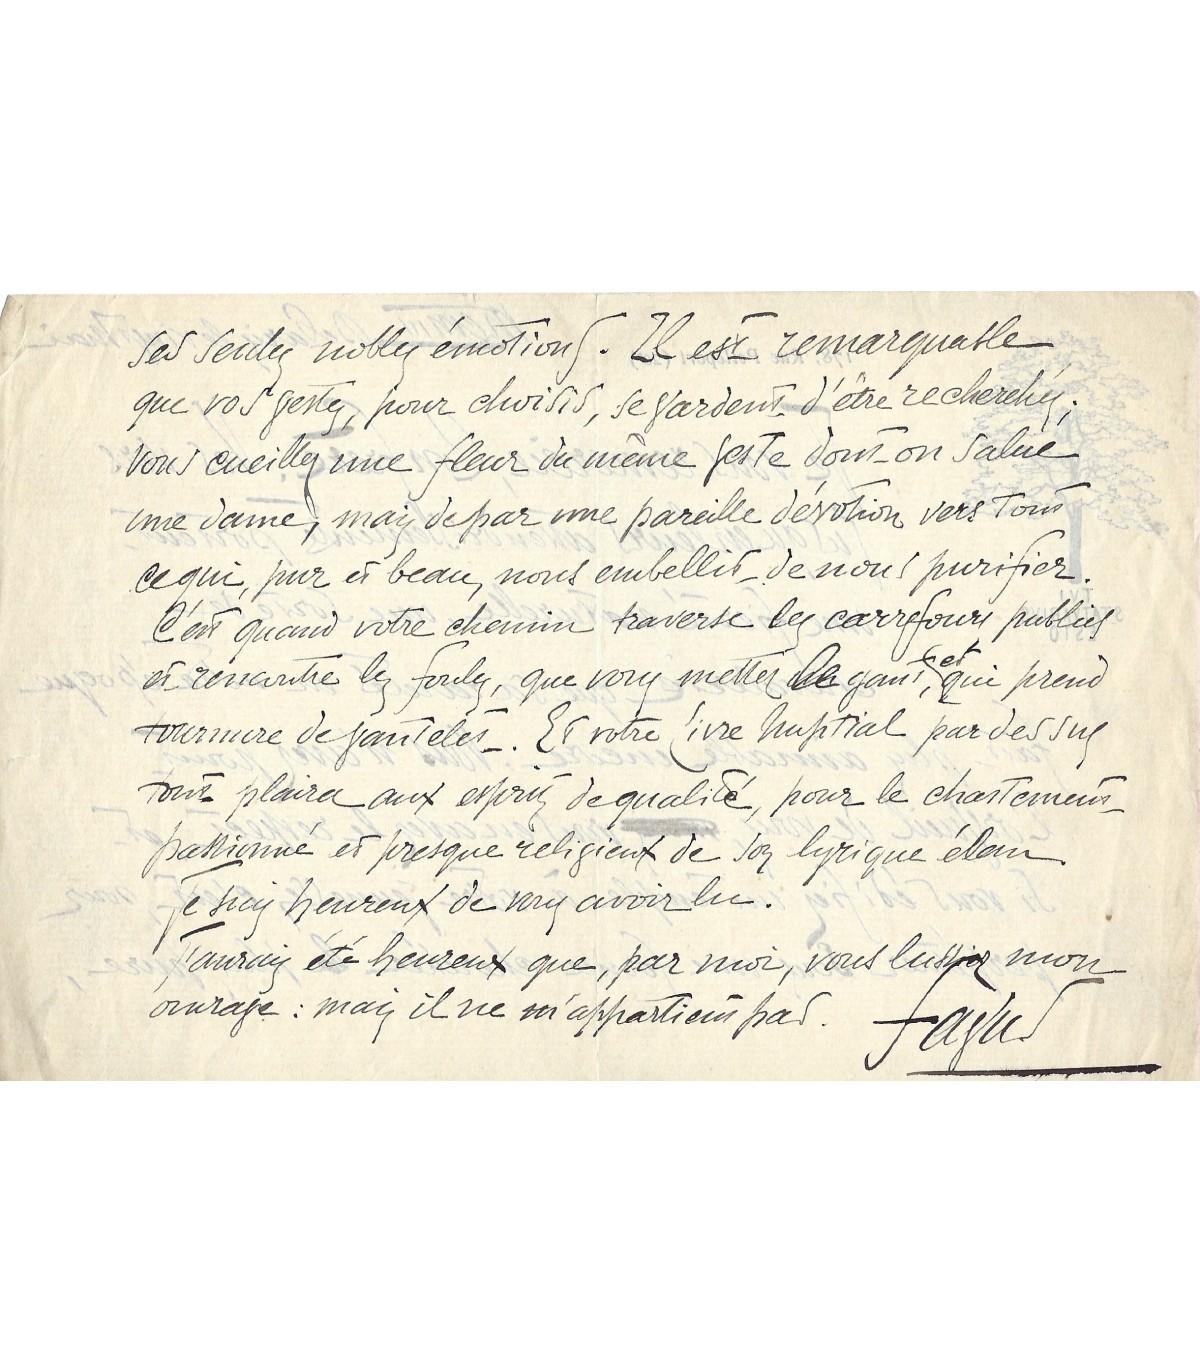 ses seules nobles émotions. Il est remarquable
que vos gestes, pour choisis, se gardent d'être recherchés;
vous cueillez une fleur du même geste dont on salue
une dame, mais de par une pareille dévotion vers tout
ce qui, pur et beau, nous embellit de nous purifier.
C'est quand votre chemin traverse les carrefours publics
et rencontre les foules, que vous mettez le gant, et qui prend
tournure de gantelet. Et votre livre nuptial par dessus
tout plaira aux esprits de qualité, pour le chastement
passionné et presque religieux de son lyrique élan.
Je suis heureux de vous avoir lu.
J'aurais été heureux que, par moi, vous lussiez mon
ouvrage : mais il ne m'appartient pas.
Fagus